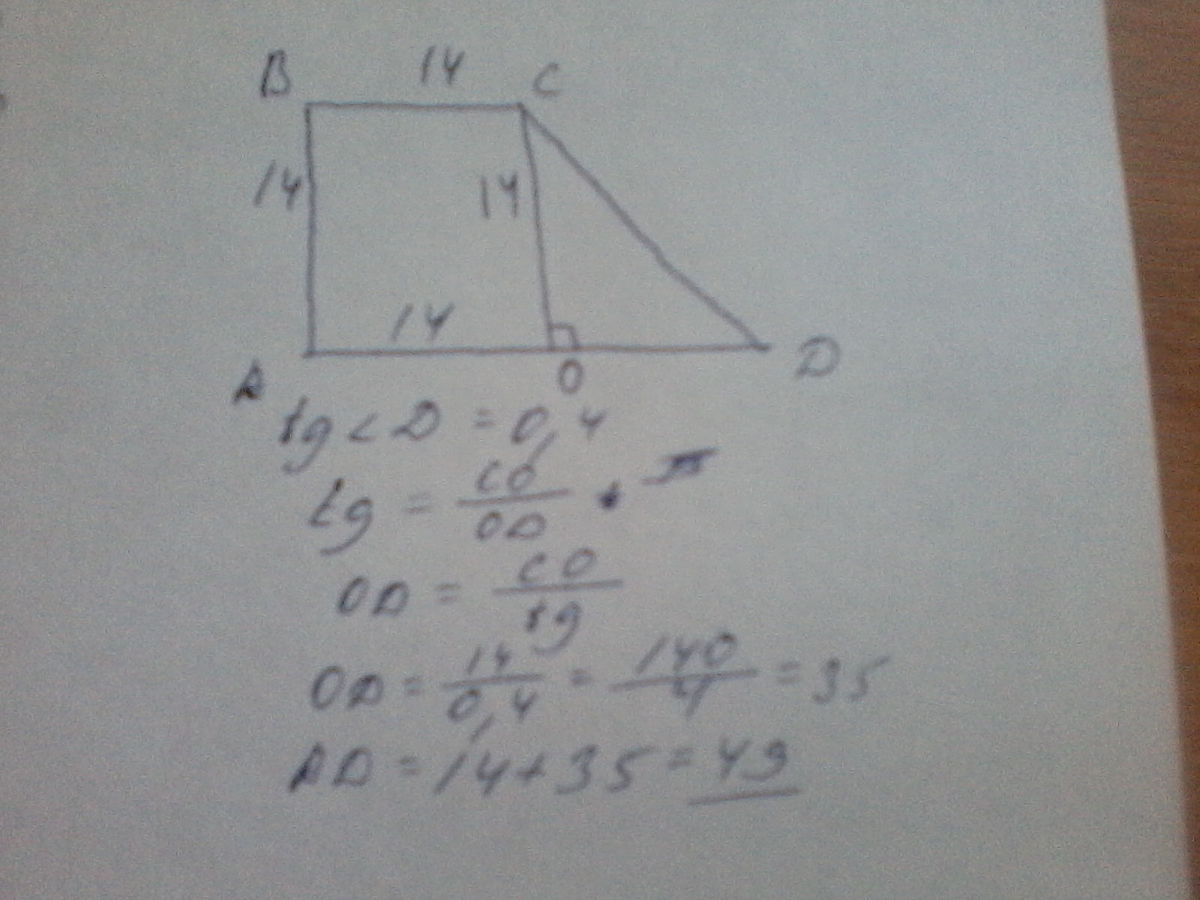 B 14 C
14 14
14
A O D
tg < D = 0,4
tg = CO/OD
OD = CO/tg
OD = 14/0,4 = 140/4 = 35
AD = 14 + 35 = 49